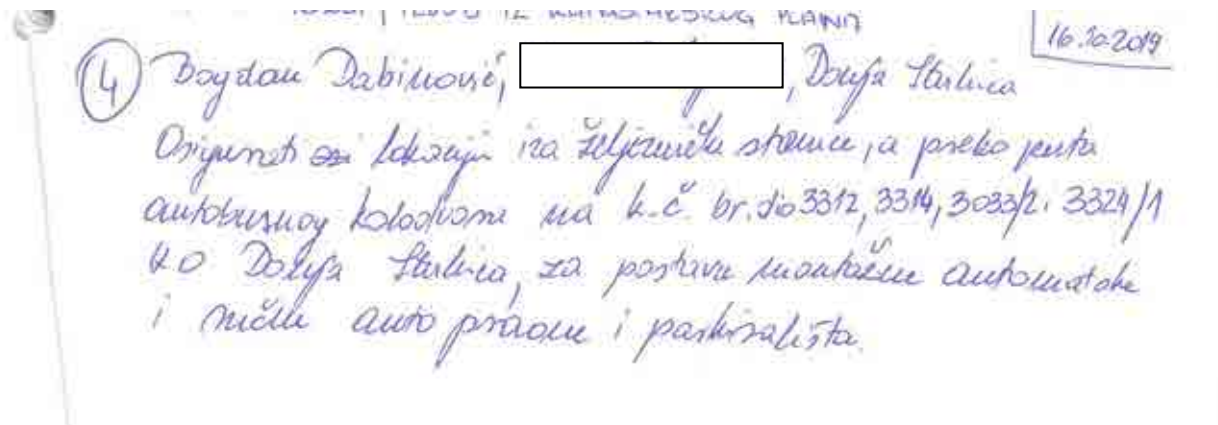 16.10.2019
④ Bogdan Dabinović, , Donja Stubica
Osigurati lokaciju iza željezničke stanice, a preko puta
autobusnog kolodvora na k.č. br. dio 3312, 3314, 3033/2 i 3324/1
KO Donja Stubica, za postavu montažne automatske
i ručne auto praone i parkirališta.